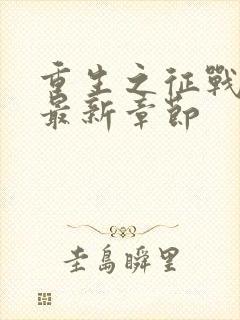 重生之征戰
最新章節
圭島瞬里